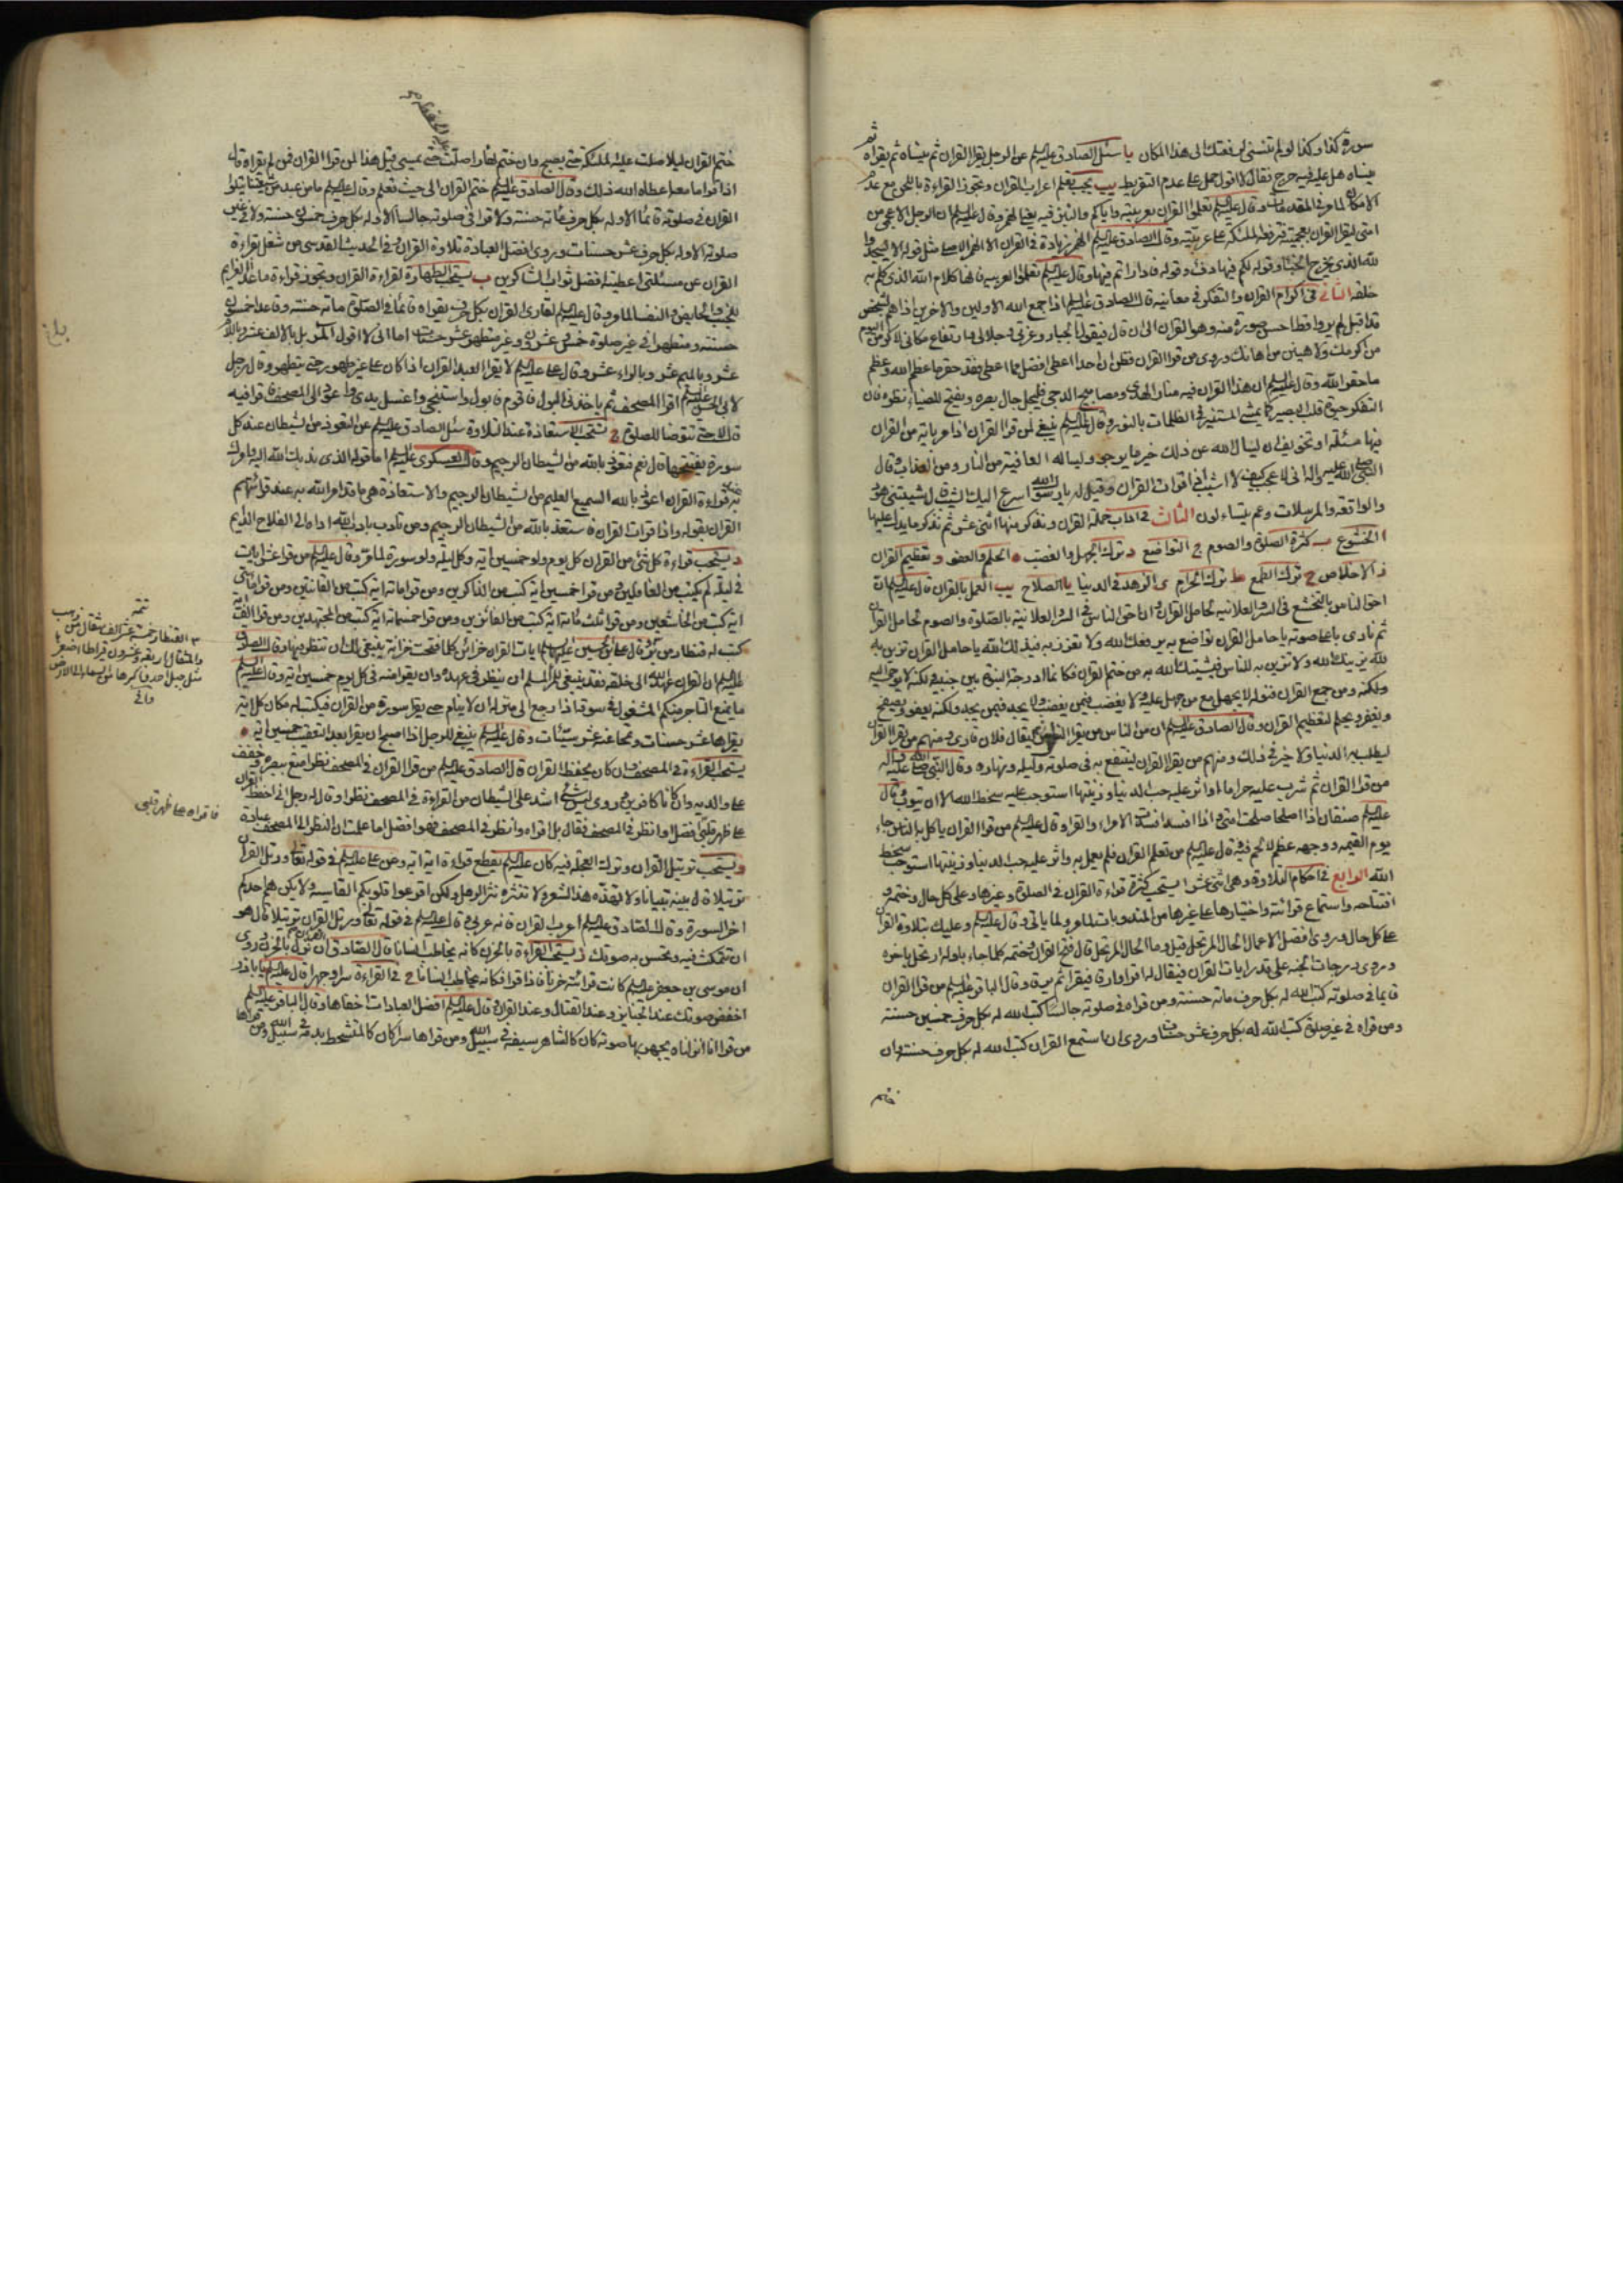 سورة كذا وكذا لو لم تنسنى لرفعتك الى هذا المكان يا سئل الصادق عليه السلم عن الرجل يقرا القران ثم ينساه ثم يقراه ثم
ينساه هل عليه فيه حرج فقال لا اقول حمل على عدم التفريط يب يجب تعلم اعراب القران وتجوز القراءة باللحن مع عدم
الامكان لما مر في المقدمات وقال عليه السلم تعلموا القران بعربيته واياكم والنبز فيه يعني الهمز وقال عليه السلم ان الرجل الاعجمي من
امتى ليقرا القران بعجميته فترفعه الملئكة على عربيته وقال الصادق عليه السلم الهمز زيادة في القران الا الهمز الاصلي مثل قوله الا يسجدوا
لله الذي يخرج الخبا وقوله لكم فيها دفء وقوله فاداراتم فيها وقال عليه السلم تعلموا العربيه فانها كلام الله الذي كلم به
خلقه الثاني في اكرام القران والتفكر في معانيه قال الصادق عليه السلم اذا جمع الله الاولين والاخرين اذا هم بشخص
قد اقبل لم ير قط احسن صورة منه وهو القران الى ان قال فيقول الجبار وعزتي وجلالي وارتفاع مكاني لاكرمن اليوم
من اكرمك ولاهينن من اهانك وروى من قرا القران فظن ان احدا اعطى افضل مما اعطى فقد حقر ما عظم الله وعظم
ما حقر الله وقال عليه السلم ان هذا القران فيه منار الهدى ومصابيح الدجى فليجل جال بصره ويفتح للضياء نظره فان
التفكر حيوة قلب البصير كما يمشي المستنير في الظلمات بالنور وقال عليه السلم ينبغي لمن قرا القران اذا مر باية من القران
فيها مسئلة او تخويف ان يسال الله عن ذلك خير ما يرجو ويساله العافية من النار ومن العذاب وقال
النبي صلى الله عليه واله اني لاعجب كيف لا اشيب اذا قرات القران وقيل له يا رسول الله اسرع اليك الشيب قال شيبتني هود
والواقعه والمرسلات وعم يتساءلون الثالث في اداب حملة القران ونذكر منها اثنى عشر ثم نذكر ما يدل عليها
ا الخشوع ب كثرة الصلوة والصوم ج التواضع د ترك الجهل والغضب ه الحلم والعفو و تعظيم القران
ز الاخلاص ح ترك الطمع ط ترك الحرام ى الزهد في الدنيا يا الصلاح يب العمل بالقران قال عليه السلم ان
احق الناس بالتخشع في السر والعلانيه لحامل القران وان احق الناس في السر والعلانية بالصلوة والصوم لحامل القران
ثم نادى باعلا صوته يا حامل القران تواضع به يرفعك الله ولا تعزز به فيذلك الله يا حامل القران تزين به
لله يزينك الله ولا تزين به للناس فيشينك الله به من ختم القران فكانما ادرجت النبوة بين جنبيه ولكنه لا يوحى اليه
ومن جمع القران فنوله لا يجهل مع من يجهل عليه ولا يغضب فيمن يغضب ولا يجد فيمن يجد ولكنه يعفو ويصفح
ويغفر ويحلم لتعظيم القران وقال الصادق عليه السلم ان من الناس من يقرا القران ليقال فلان قارى ومنهم من يقرا القران
ليطلب به الدنيا ولا خير في ذلك ومنهم من يقرا القران لينتفع به في صلوته وليله ونهاره وقال النبي صلى الله عليه واله
من قرا القران ثم شرب عليه حراما او اثر عليه حب الدنيا وزينتها استوجب عليه سخط الله الا ان يتوب وقال
عليه السلم صنفان اذا صلحا صلحت امتي واذا فسدا فسدت الامراء والقراء وقال عليه السلم من قرا القران ياكل به الناس جاء
يوم القيمه ووجهه عظم لا لحم فيه وقال عليه السلم من تعلم القران فلم يعمل به واثر عليه حب الدنيا وزينتها استوجب سخط
الله الرابع في احكام التلاوة وهي اثنى عشر ا يستحب كثرة قراءة القران في الصلوة وغيرها وعلى كل حال وختمه و
افتتاحه واستماع قرائته واختيارها على غيرها من المندوبات لما مر ولما ياتي وقال عليه السلم وعليك بتلاوة القران
على كل حال وروى افضل الاعمال الحال المرتحل قيل وما الحال المرتحل قال فتح القران وختمه كلما جاء باوله ارتحل باخره
وروى درجات الجنه على قدر ايات القران فيقال له اقرا وارق فيقرا ثم يرقى وقال الباقر عليه السلم من قرا القران
قايما في صلوته كتب الله له بكل حرف مائة حسنة ومن قراه في صلوته جالسا كتب الله له بكل حرف خمسين حسنة
ومن قراه في غير صلوة كتب الله له بكل حرف عشر حسنات وروى ان استمع القران كتب الله له بكل حرف حسنة وان
ختم
ختم القران ليلا صلت عليه الملئكة حتى يصبح وان ختم نهارا صلت حتى يمسى قيل هذا لمن قرا القران فمن لم يقراه قال
اذا قرا ما معه اعطاه الله ذلك وقال الصادق عليه السلم ختم القران الى حيث تعلم وقال عليه السلم ما من عبد من شيعتنا يتلوا
القران في صلوته قائما الا وله بكل حرف مائة حسنة ولا قرا في صلوته جالسا الا وله بكل حرف خمسون حسنة ولا في غير
صلوته الا وله بكل حرف عشر حسنات وروى افضل العبادة تلاوة القران وفي الحديث القدسى من شغل بقراءة
القران عن مسئلتي اعطيته افضل ثواب الشاكرين ب يستحب الطهارة لقراءة القران وتجوز قراءة ما عدا العزائم
للجنب والحايض والنفسا لما مر وقال عليه السلم لقارى القران بكل حرف يقراه قائما في الصلوة مائة حسنة وقاعدا خمسون
حسنة ومتطهرا في غير صلوة خمس وعشرون وغير متطهر عشر حسنات اما انى لا اقول المر بل بالالف عشر وباللام
عشر وبالميم عشر وبالراء عشر وقال على عليه السلم لا يقرا العبد القران اذا كان على غير طهور حتى يتطهر وقال رجل
لابى الحسن عليه السلم اقرا المصحف ثم ياخذنى البول فاقوم فابول واستنجى واغسل يدى واعود الى المصحف فاقرا فيه
قال لا حتى تتوضا للصلوة ج تستحب الاستعاذة عند التلاوة سئل الصادق عليه السلم عن التعوذ من الشيطان عند كل
سورة يفتتحها قال نعم فتعوذ بالله من الشيطان الرجيم وقال العسكرى عليه السلم اما قوله الذى ندبك الله اليه وامرك
به عند قراءة القران اعوذ بالله السميع العليم من الشيطان الرجيم والاستعاذة هي ما قد امر الله به عند قرائتهم
القران بقوله واذا قرات القران فاستعذ بالله من الشيطان الرجيم ومن تادب بادب الله اداه الى الفلاح الدايم
د يستحب قراءة كل شئ من القران كل يوم ولو خمسين اية وكل ليلة ولو سورة لما مر وقال عليه السلم من قرا عشر ايات
في ليلة لم يكتب من الغافلين ومن قرا خمسين اية كتب من الذاكرين ومن قرا مائة اية كتب من القانتين ومن قرا مائتى
اية كتب من الخاشعين ومن قرا ثلثمائة اية كتب من الفائزين ومن قرا خمسمائة اية كتب من المجتهدين ومن قرا الف اية
كتب له قنطار من بر وقال على بن الحسين عليهما السلم ايات القران خزائن كلما فتحت خزانة ينبغي لك ان تنظر فيها وقال الصادق
عليه السلم ان القران عهد الله الى خلقه فقد ينبغي للمرء المسلم ان ينظر في عهده وان يقرا منه في كل يوم خمسين اية وقال عليه السلم
ما يمنع التاجر منكم المشغول في سوقه اذا رجع الى منزله ان لا ينام حتى يقرا سورة من القران فيكتب له مكان كل اية
يقراها عشر حسنات وتمحا عنه عشر سيئات وقال عليه السلم ينبغي للرجل اذا اصبح ان يقرا بعد التعقيب خمسين اية ه
يستحب القراءة في المصحف وان كان يحفظ القران قال الصادق عليه السلم من قرا القران في المصحف نظرا متع ببصره وخفف
على والديه وان كانا كافرين وروى ليس شئ اشد على الشيطان من القراءة في المصحف نظرا وقال له رجل انى احفظ القران
على ظهر قلبى افضل او انظر في المصحف فقال بل اقراه وانظر في المصحف فهو افضل اما علمت ان النظر الى المصحف عبادة
و يستحب ترتيل القران وترك العجلة فيه كان عليه السلم يقطع قراءة اية اية وعن على عليه السلم في قوله تعالى ورتل القران
ترتيلا قال بينه تبيانا ولا تهذه هذ الشعر ولا تنثره نثر الرمل ولكن اقرعوا قلوبكم القاسية ولا يكن هم احدكم
اخر السورة وقال الصادق عليه السلم اعرب القران فانه عربى وقال عليه السلم في قوله تعالى ورتل القران ترتيلا قال هو
ان تتمكث فيه وتحسن به صوتك ز يستحب القراءة بالحزن كانه يخاطب انسانا قال الصادق ان القران نزل بالحزن وروى
ان موسى بن جعفر عليه السلم كانت قرائته حزنا فاذا قرا فكانه يخاطب انسانا ح في القراءة سرا وجهرا قال عليه السلم يا ابا ذر
اخفض صوتك عند الجنايز وعند القتال وعند القران وقال عليه السلم افضل العبادات اخفاها وقال الباقر عليه السلم
من قرا انا انزلناه يجهر بها صوته كان كالشاهر سيفه في سبيل الله ومن قراها سرا كان كالمتشحط بدمه في سبيل الله ومن قراها
تتمه
القنطار خمسة عشر الف مثقال من ذهب
والمثقال اربعة وعشرون قيراطا اصغرها
مثل جبل احد واكبرها ما بين السماء الى الارض
فاقراه على ظهر قلبى